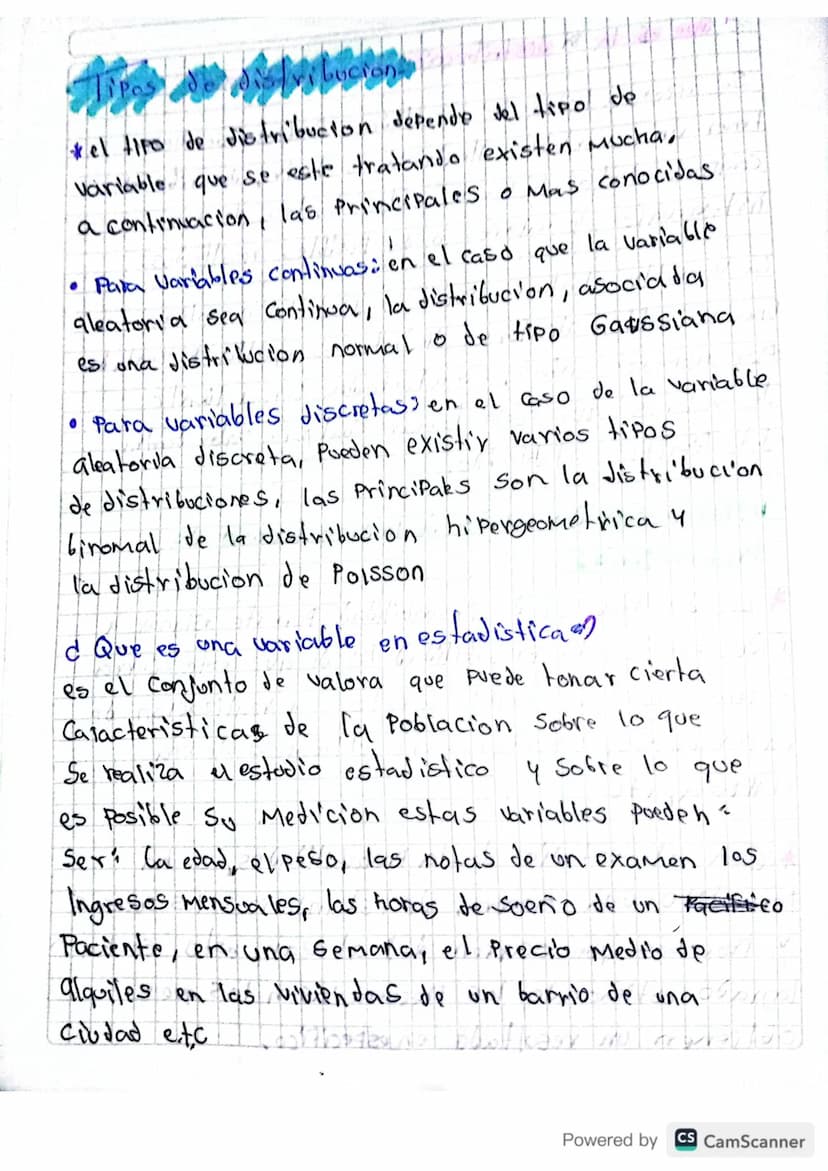 Tipos de distribucion
*el tipo de distribucion depende del tipo de
variable que se este tratando existen mucha,
a continuacion, las principales o mas conocidas
• Para variables continuas: en el caso que la variable
aleatoria sea continua, la distribucion, asociada
es una distribucion normal o de tipo Gaussiana
• Para variables discretas: en el caso de la variable
aleatoria discreta, Pueden existir varios tipos
de distribuciones, las principales son la distribucion
binomal de la distribucion hipergeometrica y
la distribucion de Poisson
d Que es una variable en estadistica
es el conjunto de valora que puede tonar cierta
Caracteristicas de la Poblacion sobre lo que
Se realiza el estudio estadistico y sobre lo que
es posible su Medicion estas variables pueden
Ser: la edad, el peso, las notas de un examen los
Ingresos mensuales, las horas de sueño de un
Paciente, en una semana, el Precio Medio de
alquiles en las viviendas de un barrio de una
ciudad etc
Powered by CS CamScanner